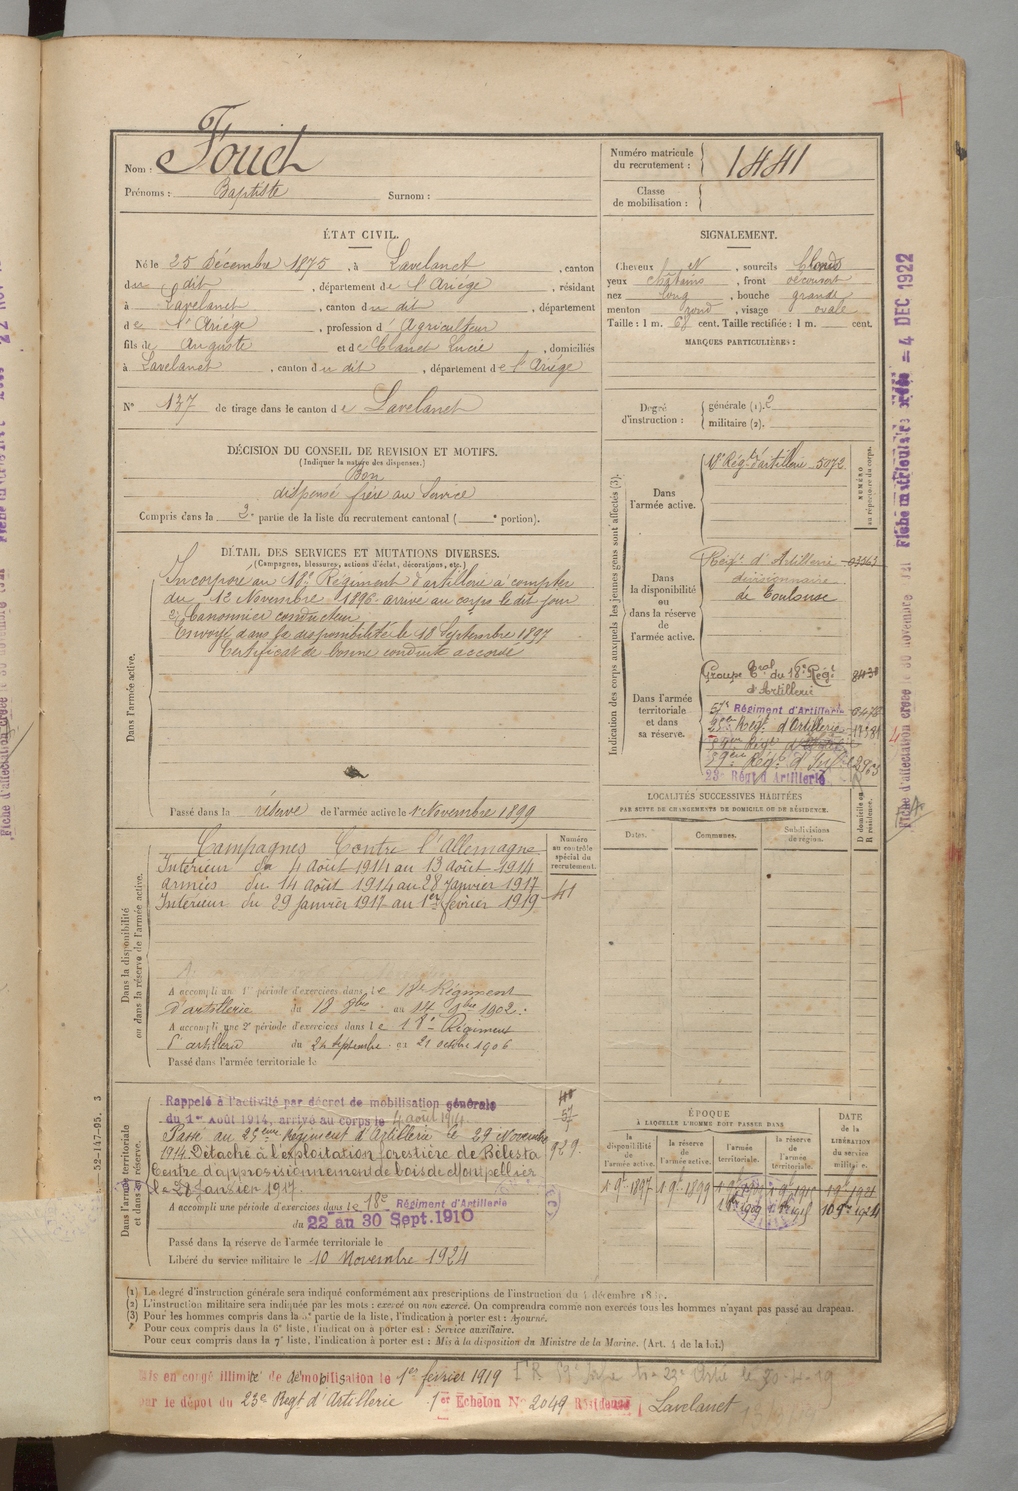 Nom : Fouet
Prénoms : Baptiste Surnom :
Numéro matricule du recrutement : 1441
Classe de mobilisation :
ÉTAT CIVIL.
Né le 25 Décembre 1875, à Lavelanet, canton
du dit, département de l'Ariége, résidant
à Lavelanet, canton du dit, département
de l'Ariége, profession d'Agriculteur
fils de Auguste et de Clanet Lucie, domiciliés
à Lavelanet, canton du dit, département de l'Ariége
N° 137 de tirage dans le canton de Lavelanet
SIGNALEMENT.
Cheveux et, sourcils blonds
yeux chatains, front découvert
nez long, bouche grande
menton rond, visage ovale
Taille : 1 m. 68 cent. Taille rectifiée : 1 m. cent.
MARQUES PARTICULIÈRES :
Degré d'instruction : générale (1). 2
militaire (2).
DÉCISION DU CONSEIL DE REVISION ET MOTIFS.
(Indiquer la nature des dispenses.)
Bon
dispensé frère au Service
Compris dans la 2e partie de la liste du recrutement cantonal ( e portion).
DÉTAIL DES SERVICES ET MUTATIONS DIVERSES.
(Campagnes, blessures, actions d'éclat, décorations, etc.)
Dans l'armée active.
Incorporé au 18e Régiment d'artillerie à compter
du 12 Novembre 1896 arrivé au corps le dit jour
2e Canonnier conducteur
Envoyé dans la disponibilité le 18 Septembre 1897
Certificat de bonne conduite accordé
Passé dans la réserve de l'armée active le 1 Novembre 1899
Indication des corps auxquels les jeunes gens sont affectés (3).
NUMÉRO au répertoire du corps.
Dans l'armée active.
18e Régt d'artillerie 5072
Dans la disponibilité ou dans la réserve de l'armée active.
Régt d'Artillerie 03363
divisionnaire
de Toulouse
Dans l'armée territoriale et dans sa réserve.
Groupe Tral du 18e Régt
d'Artillerie
57e Régiment d'Artillerie
25e Régt d'Artillerie
59ème Régt d'Inf
23e Régt d'Artillerie
LOCALITÉS SUCCESSIVES HABITÉES
PAR SUITE DE CHANGEMENTS DE DOMICILE OU DE RÉSIDENCE.
D domicile ou R résidence.
Dates. Communes. Subdivisions de région.
Dans la disponibilité ou dans la réserve de l'armée active.
Campagnes Contre l'Allemagne
Intérieur du 4 Août 1914 au 13 août 1914
armées du 14 Août 1914 au 28 Janvier 1917
Intérieur du 29 Janvier 1917 au 1er février 1919
Numéro au contrôle spécial du recrutement.
41
A accompli une 1e période d'exercices dans le 18e Régiment
d'artillerie du 18 8bre au 14 9bre 1902.
A accompli une 2e période d'exercices dans le 18e Régiment
d'artillerie du 24 Septembre au 21 octobre 1906
Passé dans l'armée territoriale le
Dans l'armée territoriale et dans sa réserve.
Rappelé à l'activité par décret de mobilisation générale
du 1er Août 1914, arrivé au corps le 4 août 1914
Passé au 25ème Régiment d'Artillerie le 29 Novembre
1914. Détaché à l'exploitation forestière de Bélesta
Centre d'approvisionnement de bois de Montpellier
le 28 Janvier 1917.
A accompli une période d'exercices dans le 18e Régiment d'Artillerie
du 22 au 30 Sept. 1910
Passé dans la réserve de l'armée territoriale le
Libéré du service militaire le 10 Novembre 1924
57
929
ÉPOQUE
À LAQUELLE L'HOMME DOIT PASSER DANS
la disponibilité de l'armée active.
la réserve de l'armée active.
l'armée territoriale.
la réserve de l'armée territoriale.
DATE de la LIBÉRATION du service militaire.
1 9e 1897 1 9e 1899
(1) Le degré d'instruction générale sera indiqué conformément aux prescriptions de l'instruction du 4 décembre
(2) L'instruction militaire sera indiquée par les mots : exercé ou non exercé. On comprendra comme non exercés tous les hommes n'ayant pas passé au drapeau.
(3) Pour les hommes compris dans la 5e partie de la liste, l'indication à porter est : Ajourné.
Pour ceux compris dans la 6e liste, l'indication à porter est : Service auxiliaire.
Pour ceux compris dans la 7e liste, l'indication à porter est : Mis à la disposition du Ministre de la Marine. (Art. 4 de la loi.)
Mis en congé illimité de démobilisation le 1er février 1919
par le dépôt du 23e Regt d'Artillerie 1er Echelon N° 2049 Résidence Lavelanet
Fiche matriculaire créée = 4 DEC 1922
Fiche d'affectation créée le 30 novembre